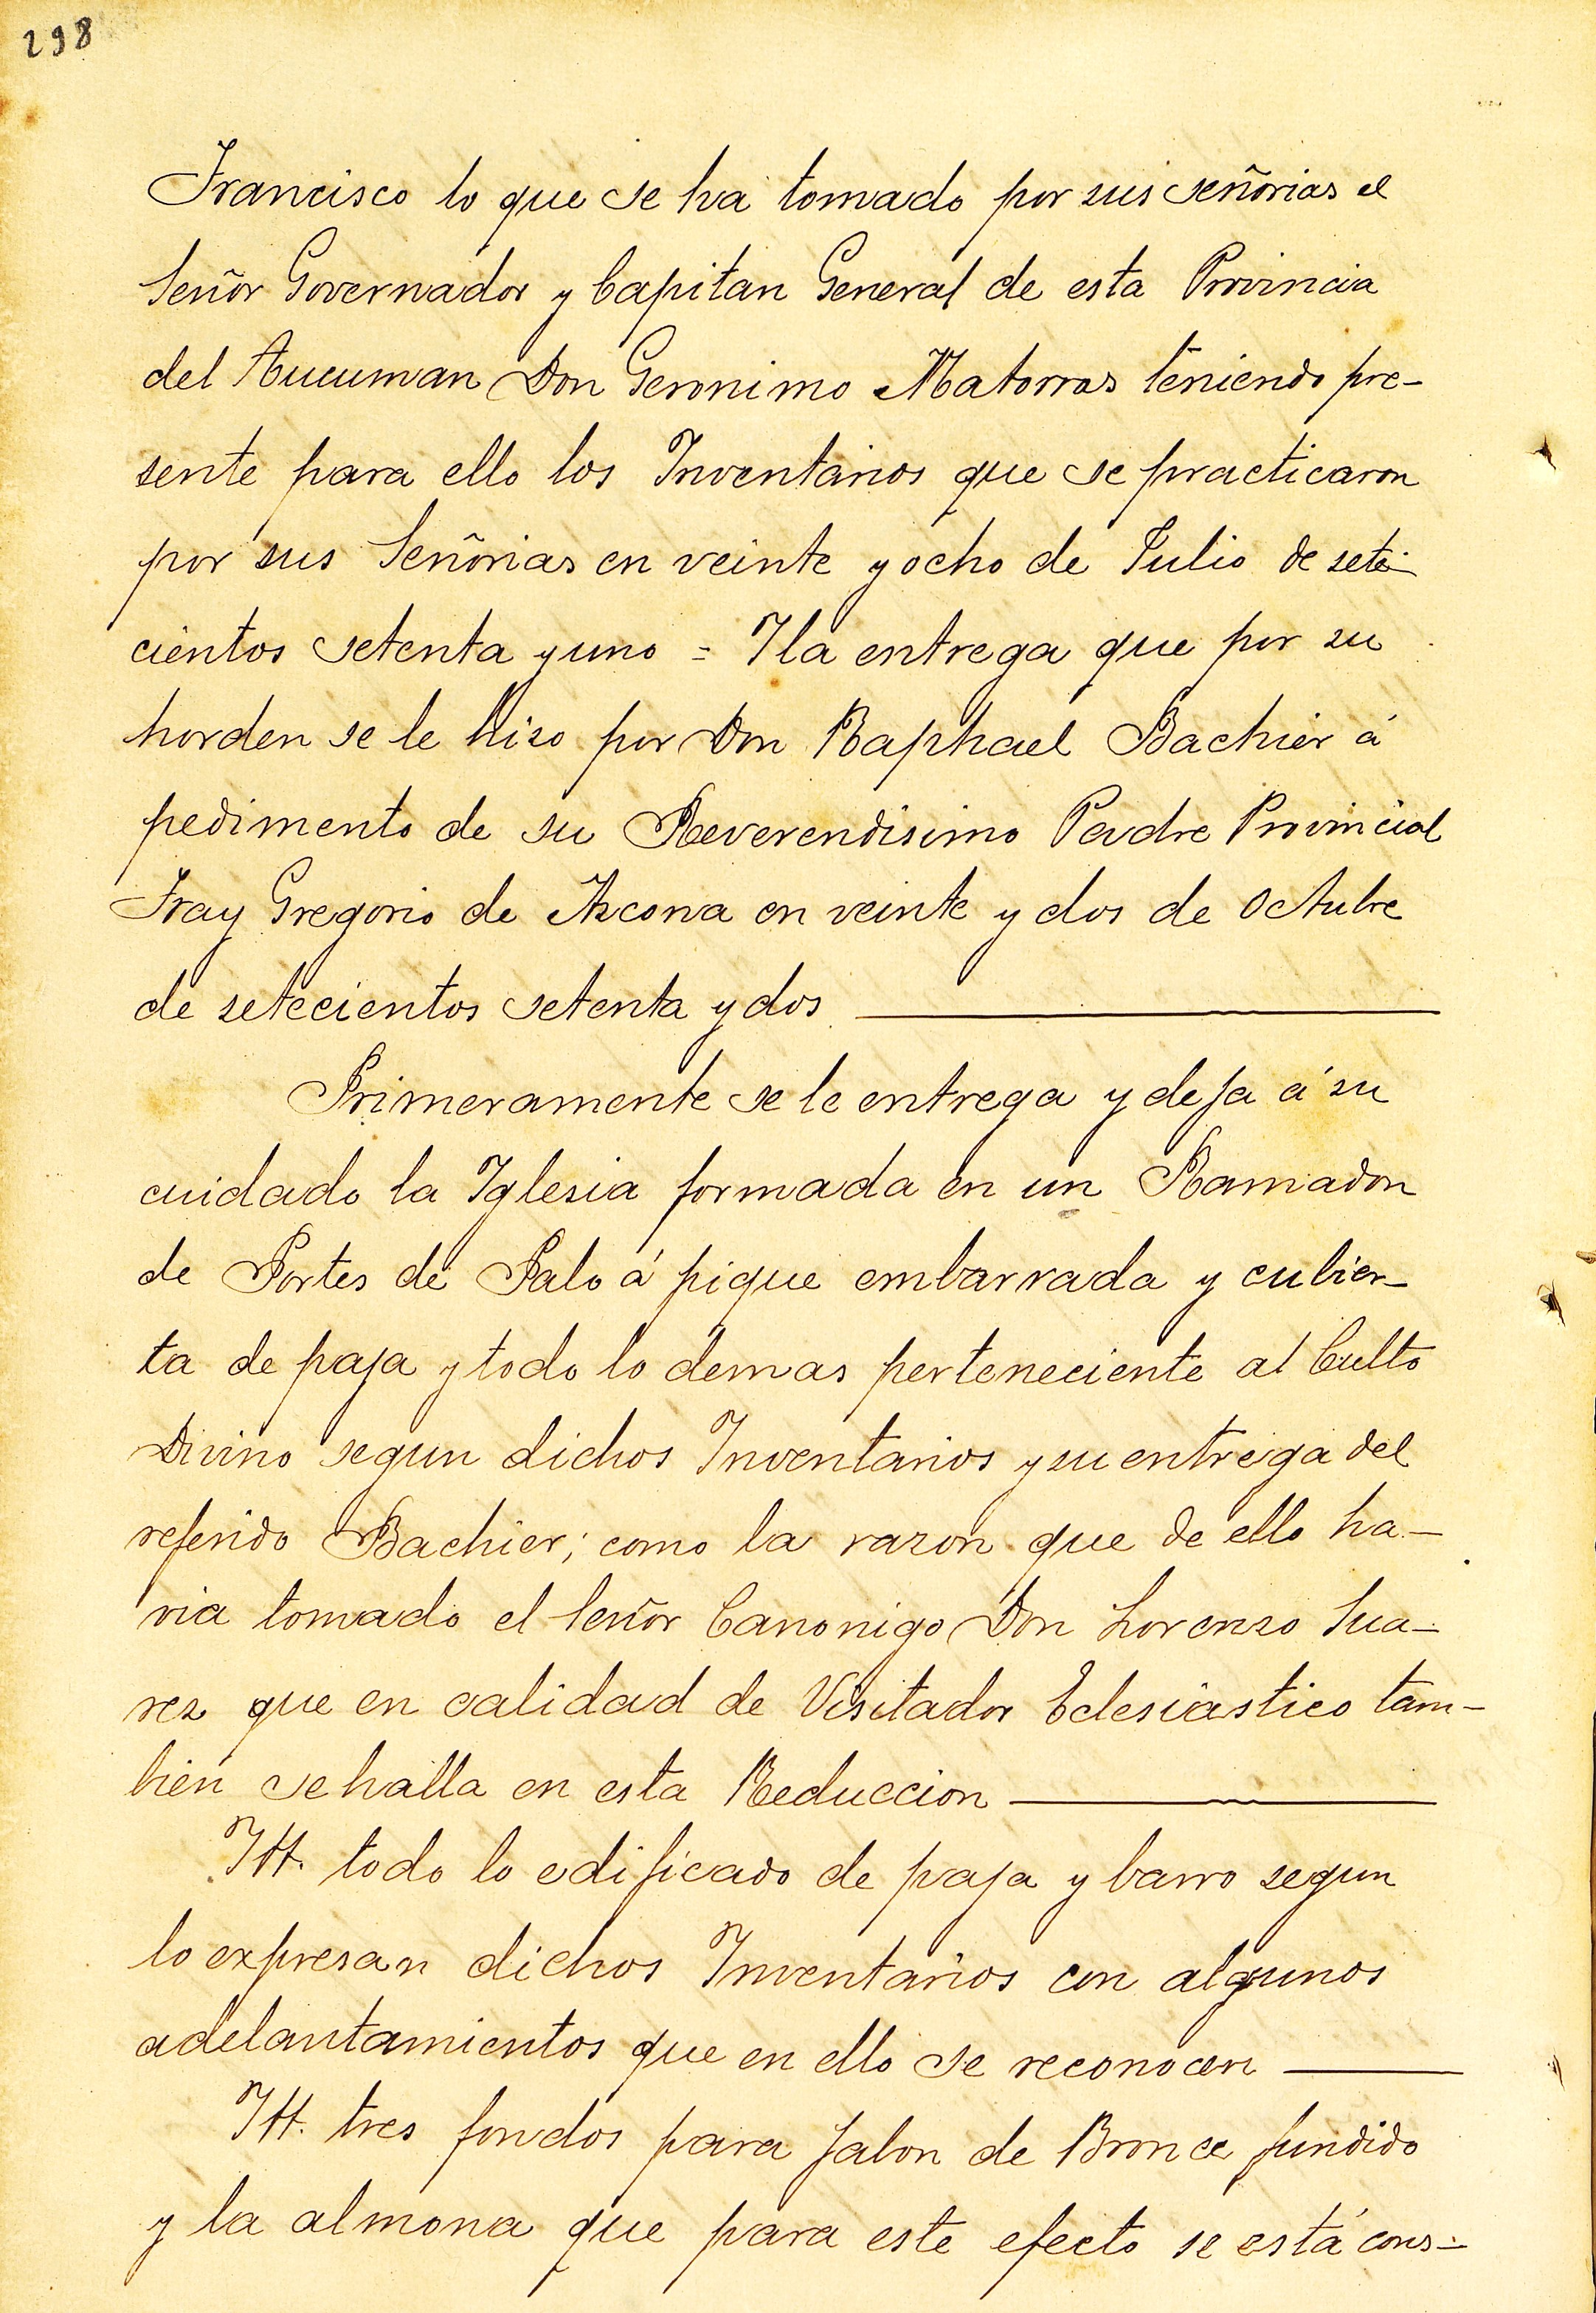 298
Francisco lo que se ha tomado por sus señorias el
Señor Governador y Capitan General de esta Provincia
del Tucuman Don Geronimo Matorras teniendo pre-
sente para ello los Inventarios que se practicaron
por sus Señorias en veinte y ocho de Julio de sete-
cientos setenta y uno = Y la entrega que por su
horden se le hizo por Don Raphael Bachier á
pedimento de su Reverendisimo Padre Provincial
Fray Gregorio de Azcona en veinte y dos de Octubre
de setecientos setenta y dos
Primeramente se le entrega y deja á su
cuidado la Iglesia formada en un Ramadon
de Portes de Palo á pique embarrada y cubier-
ta de paja y todo lo demas perteneciente al Culto
Divino segun dichos Inventarios y su entrega del
referido Bachier; como la razon que de ello ha-
via tomado el Señor Canonigo Don Lorenzo Sua-
rez que en calidad de Visitador Eclesiastico tam-
bien se halla en esta Reduccion
Itt. todo lo edificado de paja y barro segun
lo expresan dichos Inventarios con algunos
adelantamientos que en ello se reconocen
Itt. tres fondos para Jabon de Bronce fundido
y la almona que para este efecto se está cons-